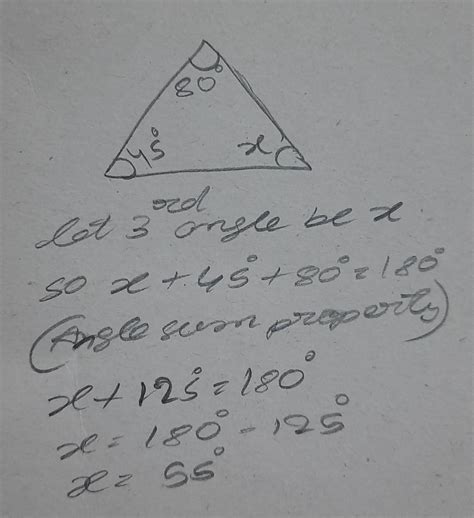 80°
45° x
let 3rd angle be x
so x + 45° + 80° = 180°
(Angle sum property)
x + 125° = 180°
x = 180° - 125°
x = 55°